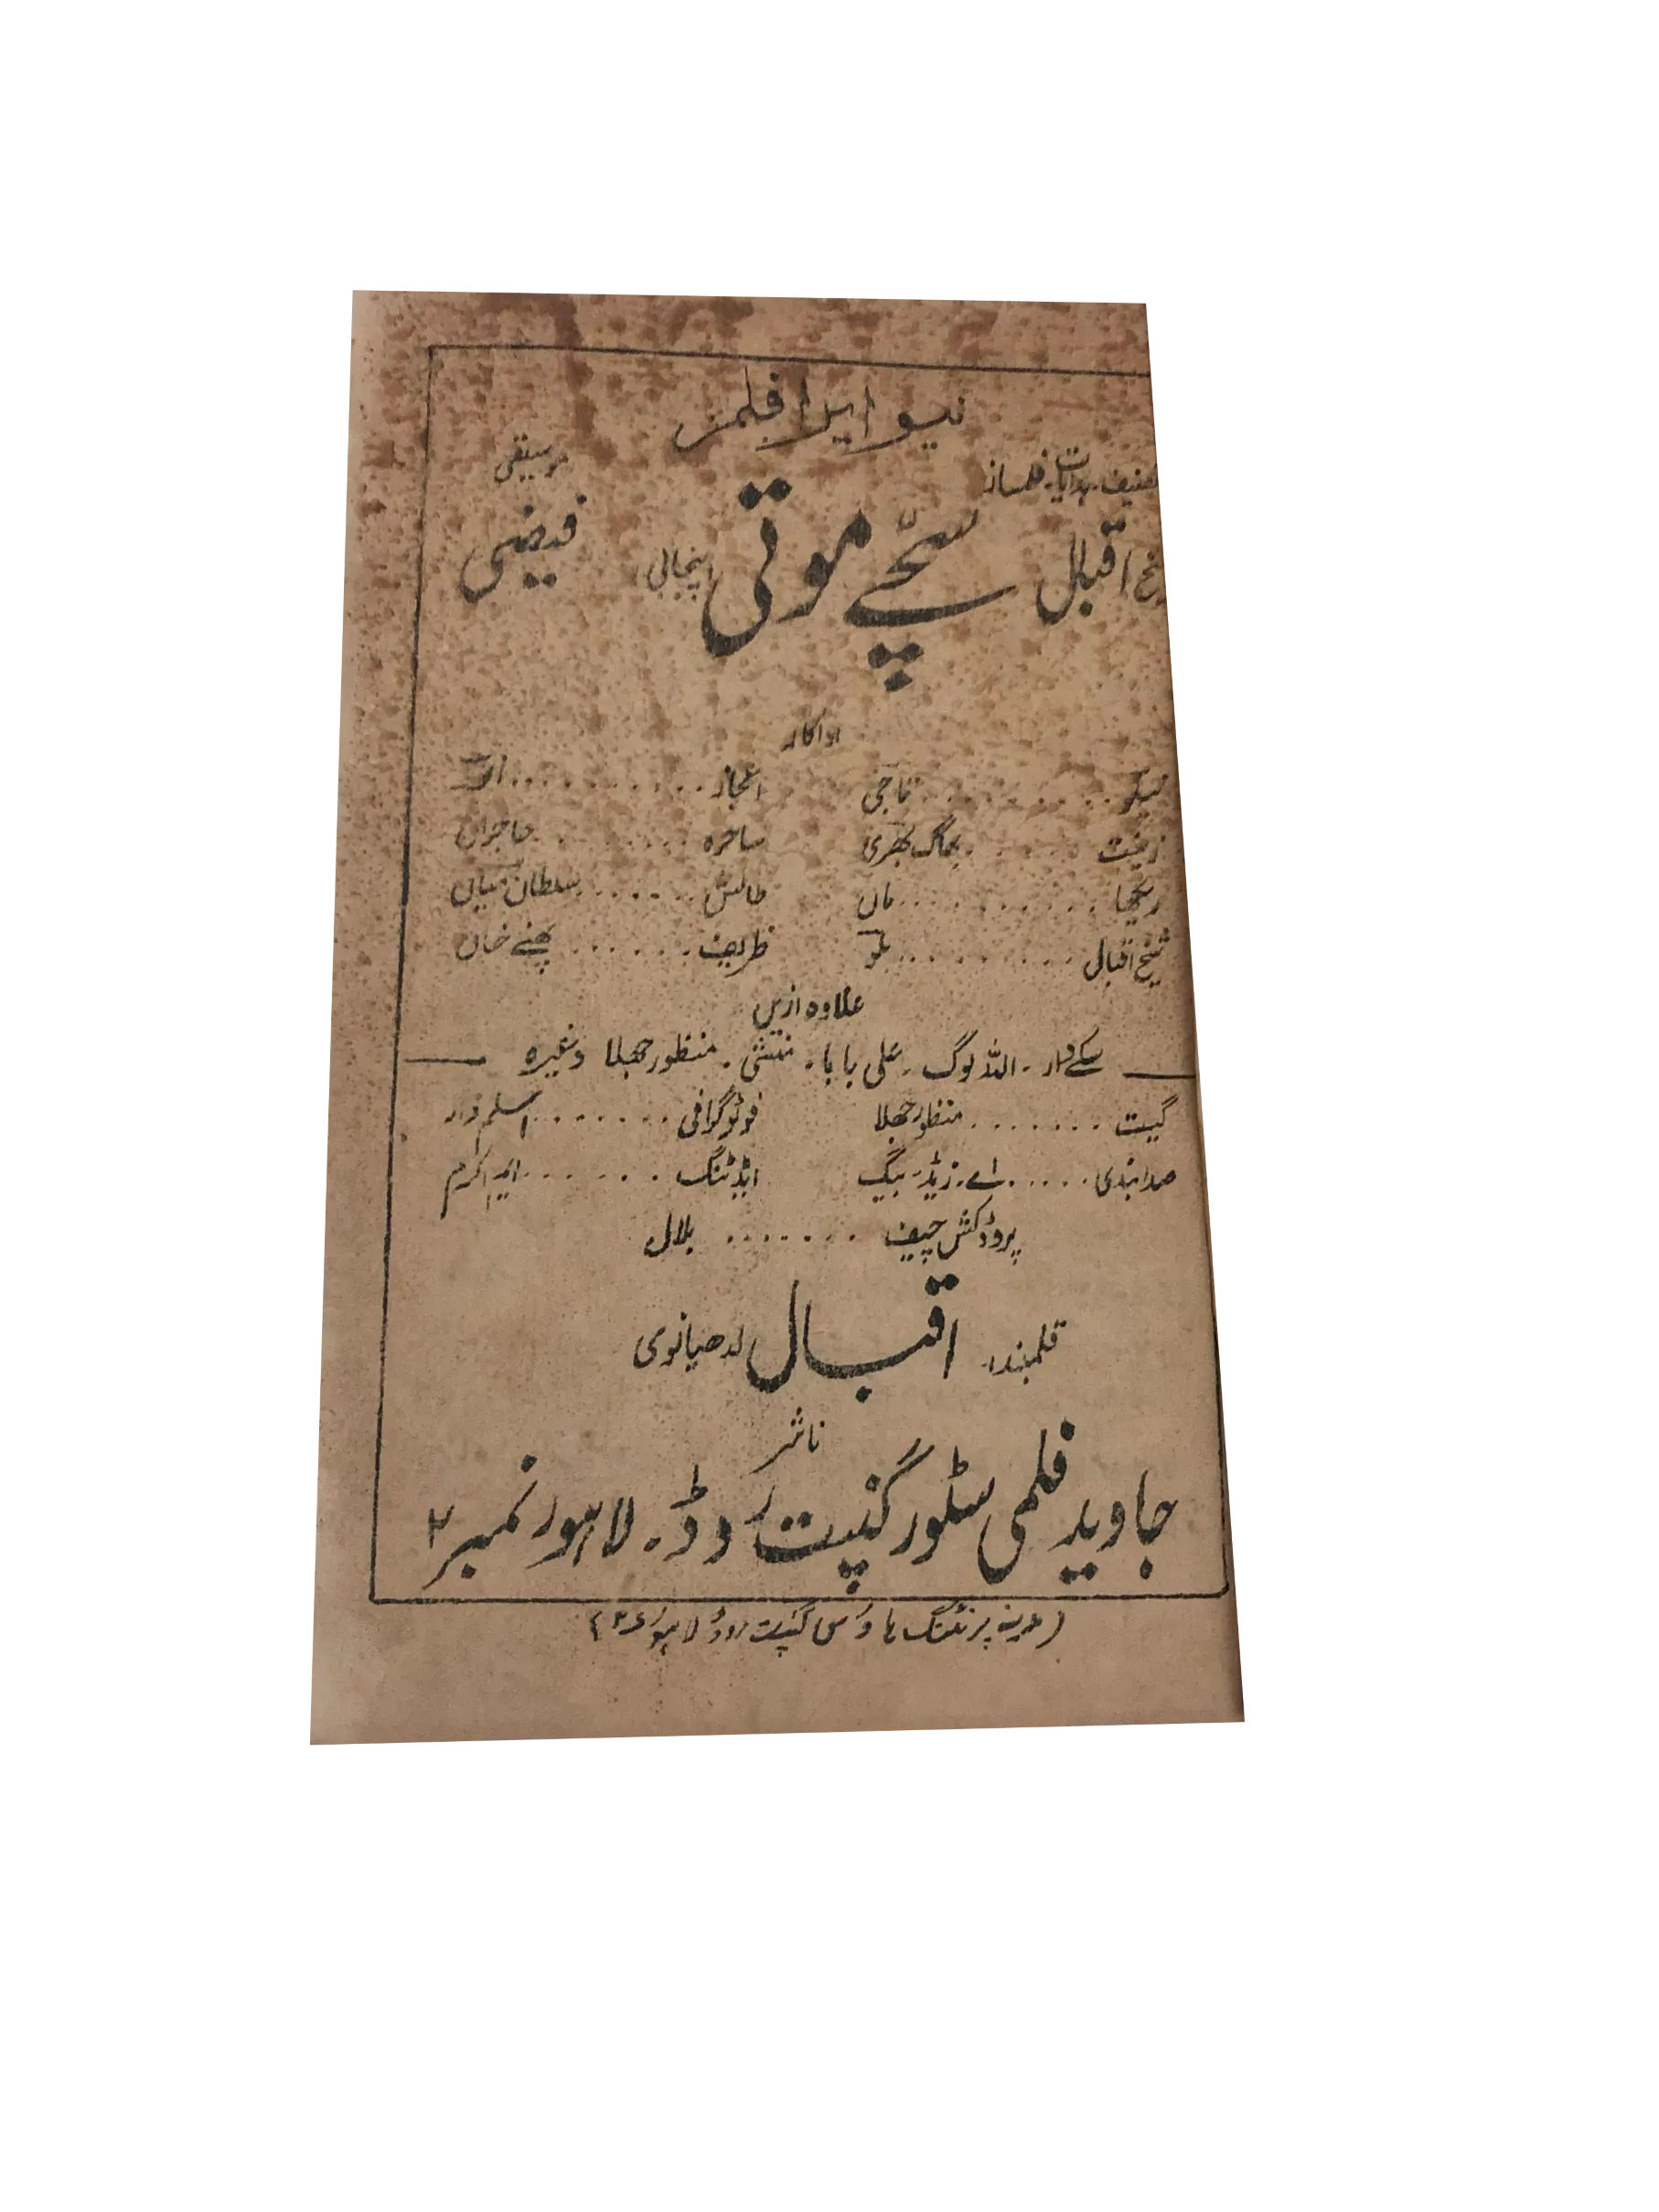 نیو ایرا فلمز
موسیقی
ہدایات۔ فسانہ
شیخ اقبال سچّے موتی (پنجابی) فیضی
اداکار
نیلو . . . . . . . . . ناجی اعجاز . . . . . . . . .
زینت . . . . . . بھاگ بھری ساحرہ . . . . . . حاجراں
ریکھا . . . . . . . . . ماں طالش . . . . . . سلطان میاں
شیخ اقبال . . . . . . . . بلو ظریف . . . . . . پھنے خاں
علاوہ ازیں
سکے دار۔ اللہ لوگ۔ علی بابا۔ منشی۔ منظور جھلا وغیرہ
گیت . . . . . . . منظور جھلا فوٹوگرافی . . . . . . . اسلم ڈار
صدابندی . . . . . اے۔ زیڈ۔ بیگ ایڈٹنگ . . . . . . ایم اکرم
پروڈکشن چیف . . . . . . . بلال
قلمبند۔ اقبال لدھیانوی
ناشر
جاوید فلمی سٹور گنپت روڈ۔ لاہور نمبر ۲
(مدینہ پرنٹنگ ہاؤس گنپت روڈ لاہور